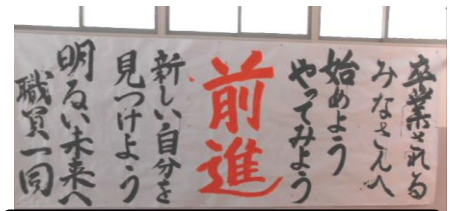 卒業される
みなさんへ
始めよう
やってみよう
前進
新しい自分を
見つけよう
明るい未来へ
職員一同